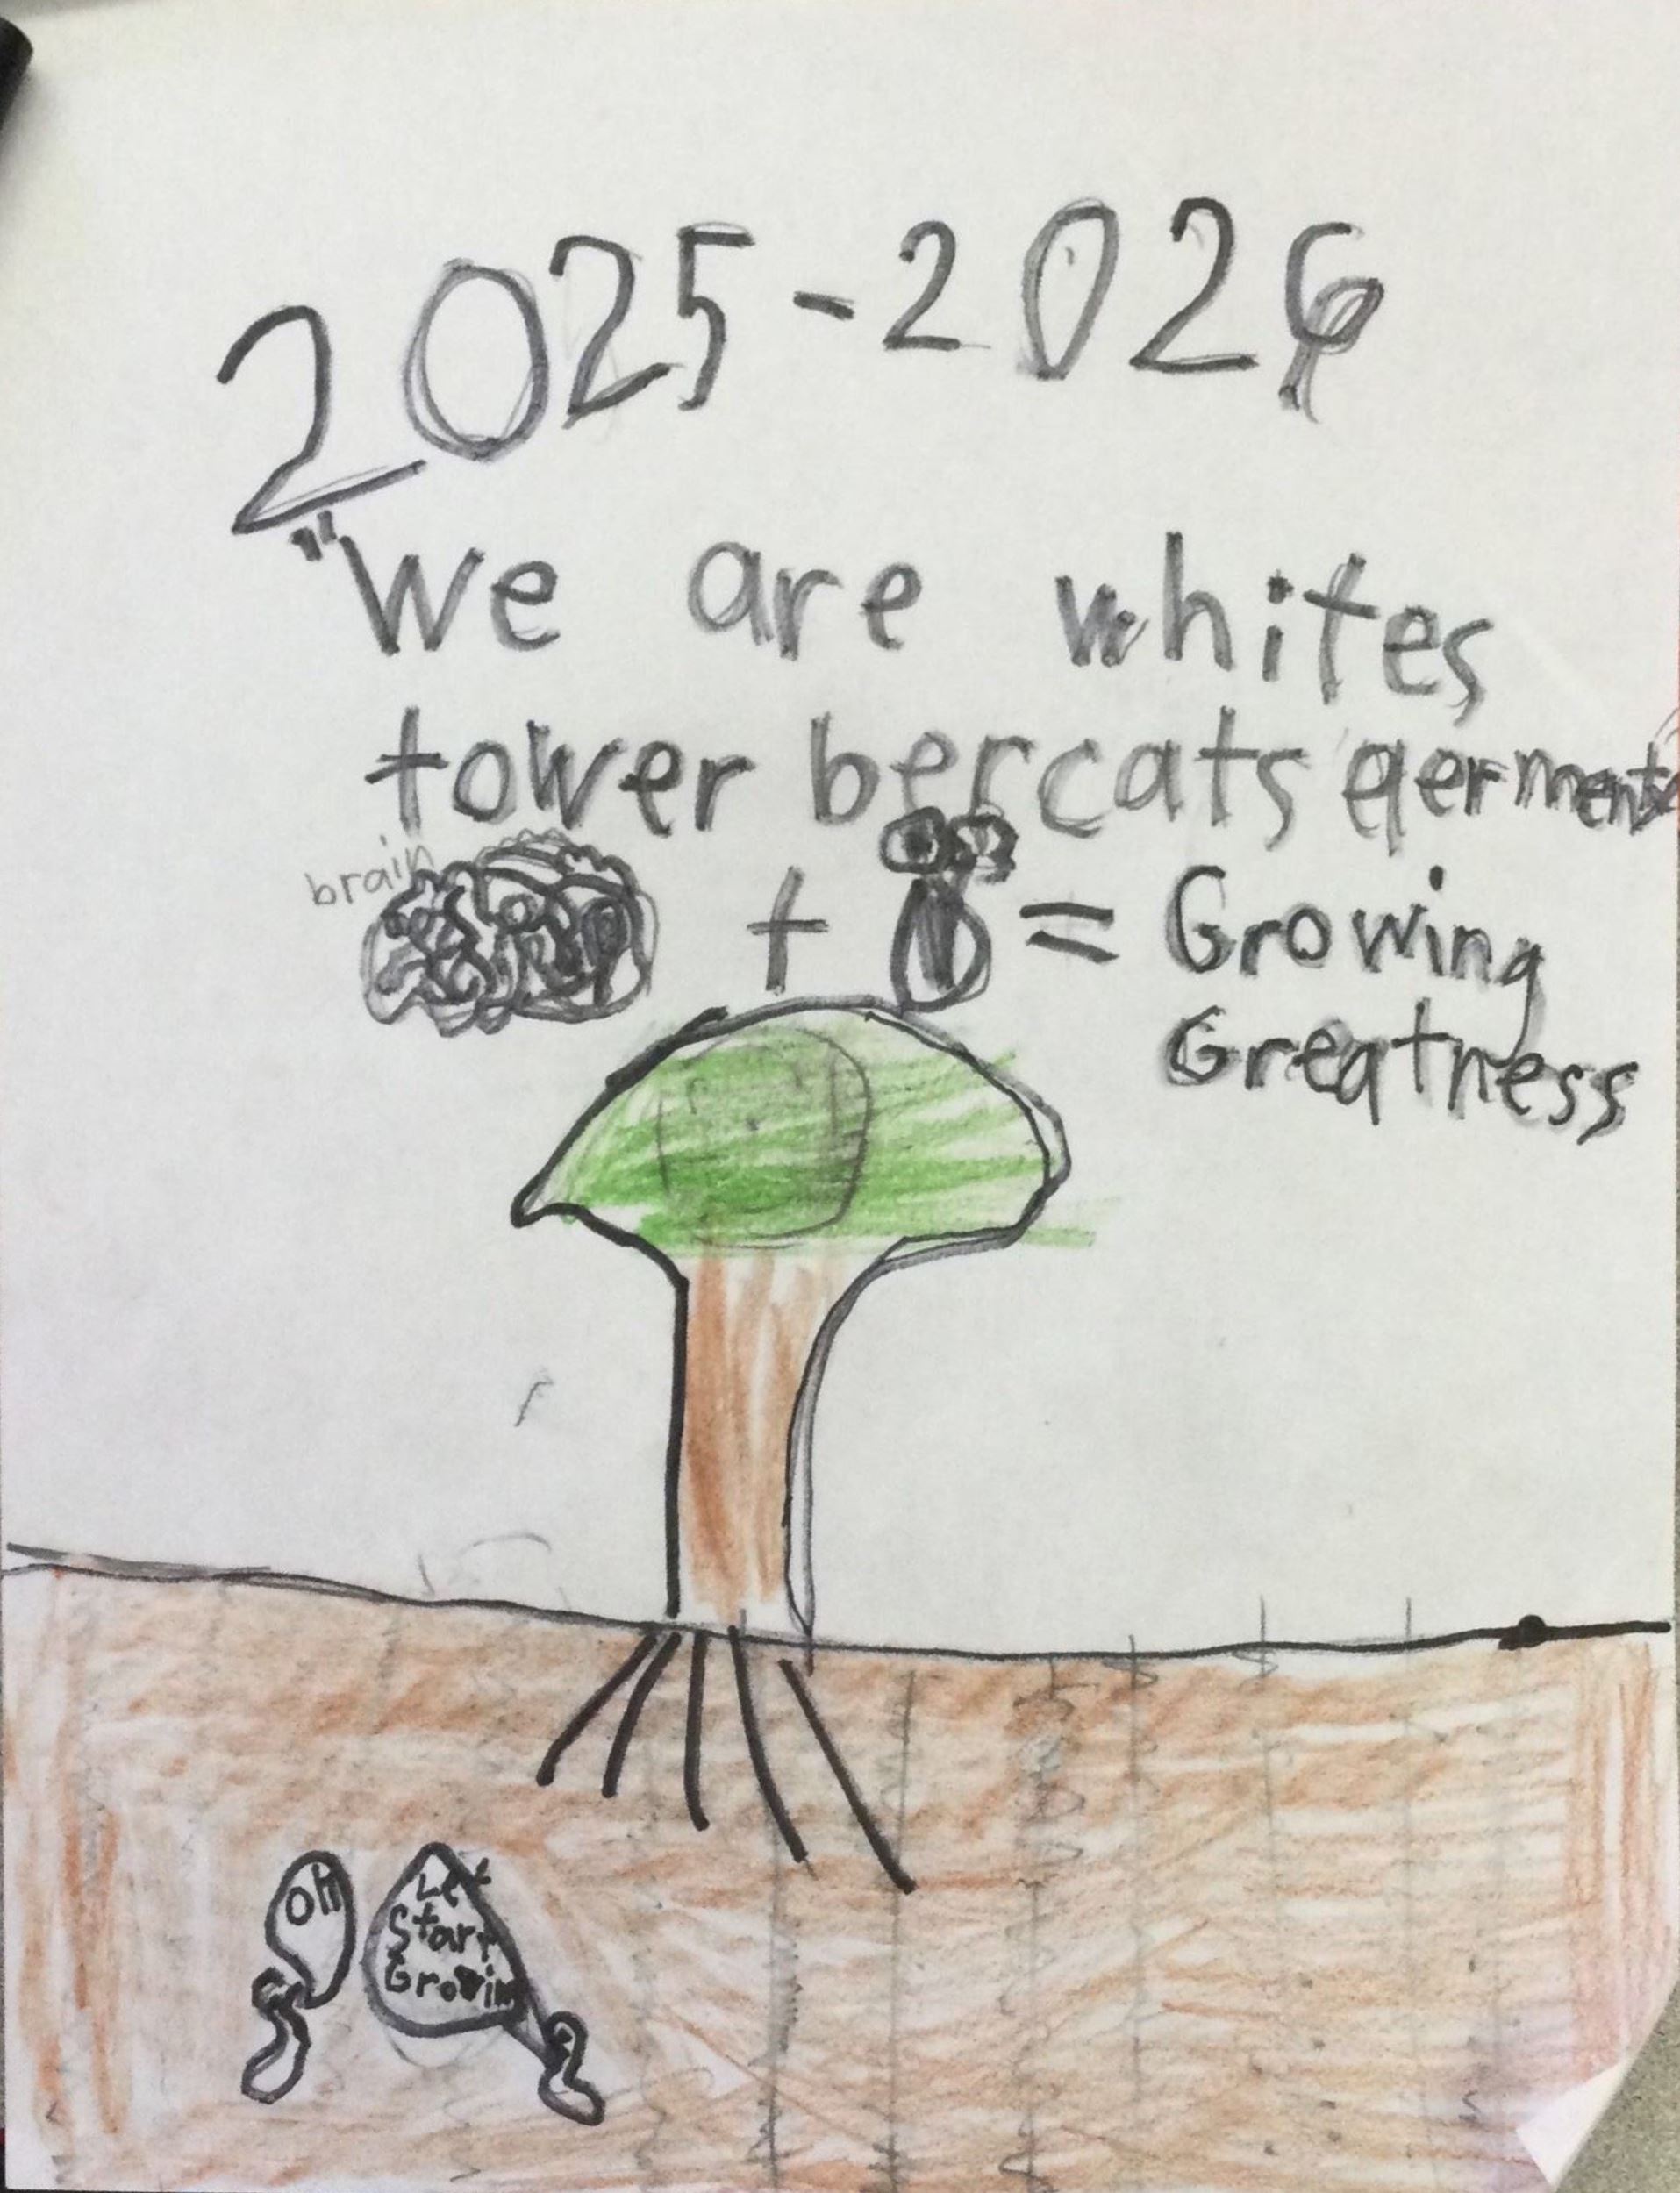 2025-2026
"We are whites
tower bercats germents
brain
+ = Growing
Greatness
OH
Let
Start
Growin